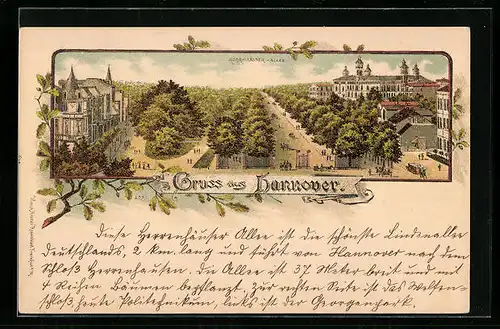 HERRENHÄUSER ALLEE
Gruss aus Hannover.
Diese Herrenhäuser Allee ist die schönste Lindenallee
Deutschlands, 2 km. lang und führt von Hannover nach dem
Schloß Herrenhausen. Die Allee ist 37 Meter breit und mit
4 Reihen Bäumen bepflanzt. Zur rechten Seite ist das Welfen-
schloß, heute Politechnikum, links ist der Georgenpark.